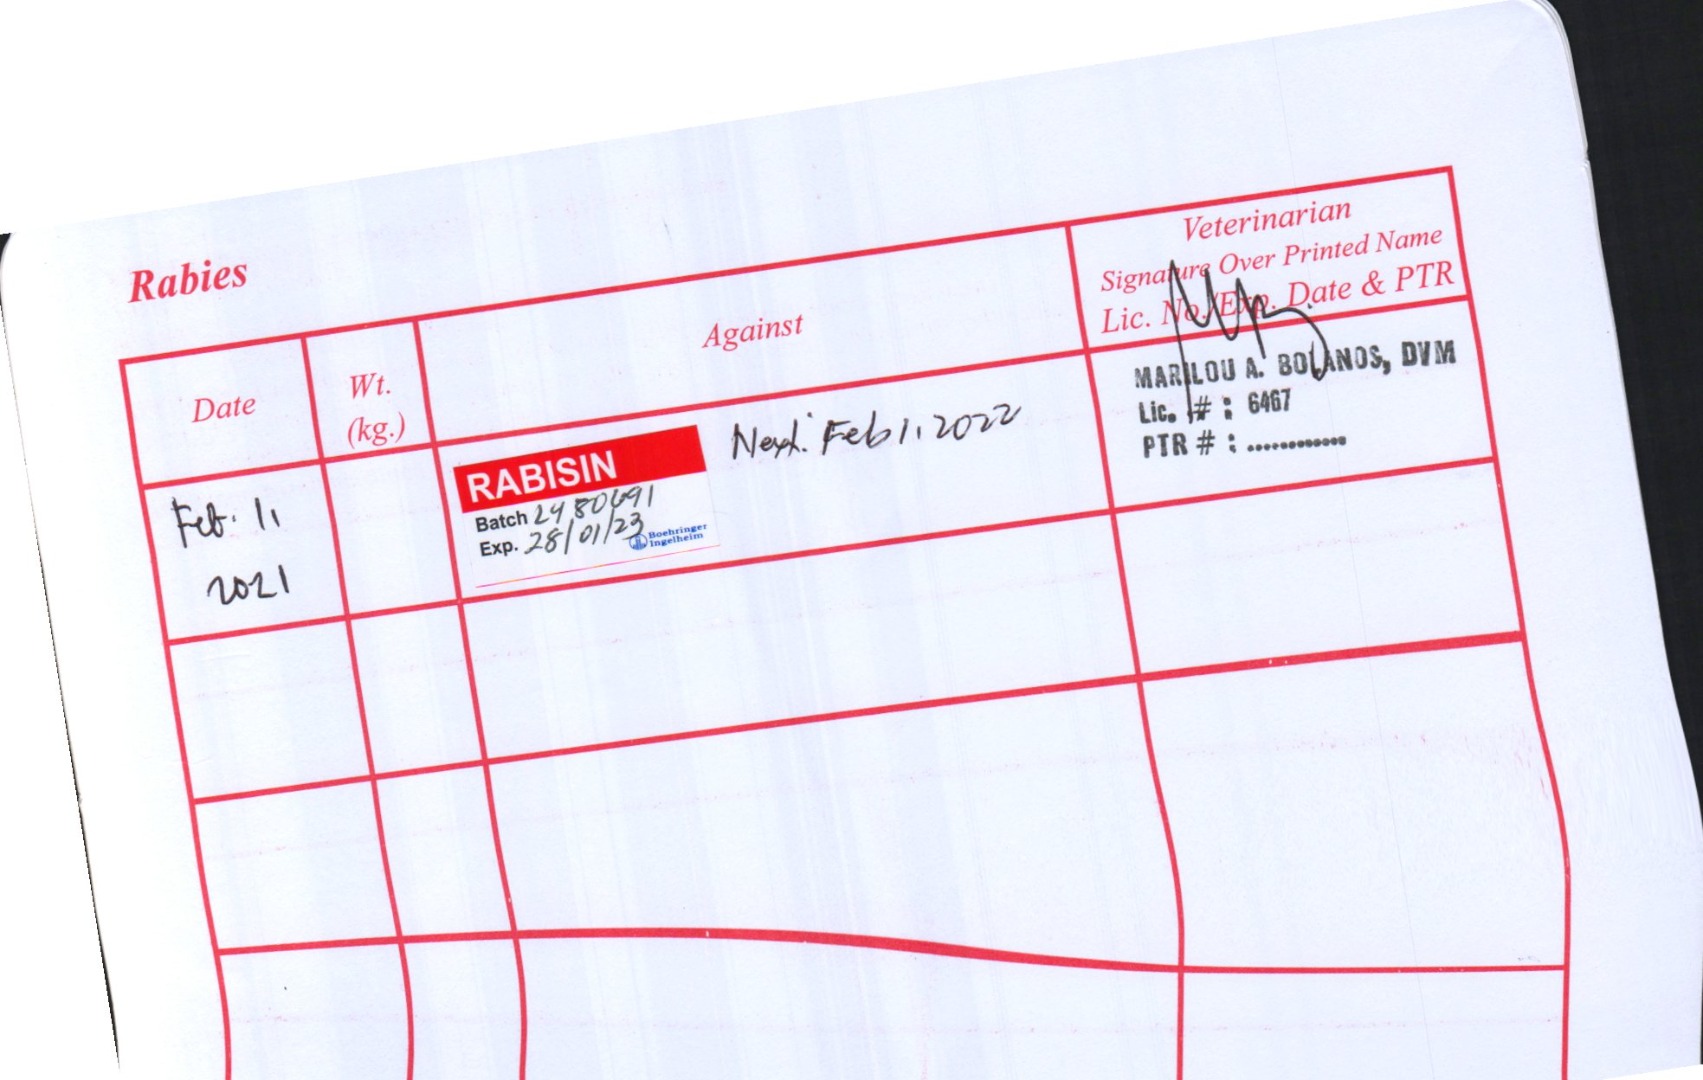 Rabies
Date
Wt.
(kg.)
Against
Veterinarian
Signature Over Printed Name
Lic. No./Exp. Date & PTR
Feb. 1,
2021
RABISIN
Batch 2480691
Exp. 28/01/23
Boehringer
Ingelheim
Next: Feb 1, 2022
MARILOU A. BOLANOS, DVM
Lic. # : 6467
PTR # : ............